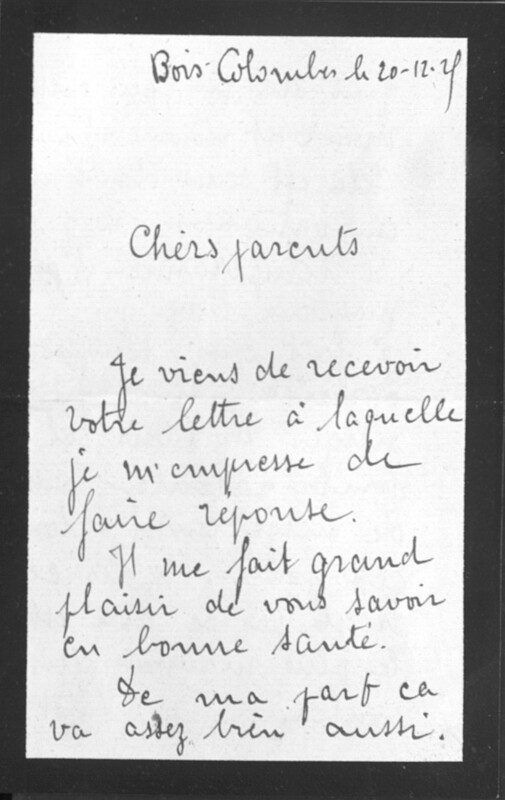 Bois-Colombes le 20-12-25
Chèrs parents
Je viens de recevoir
votre lettre à laquelle
je m'empresse de
faire réponse.
Il me fait grand
plaisir de vous savoir
en bonne santé.
De ma part ca
va assez bien aussi.